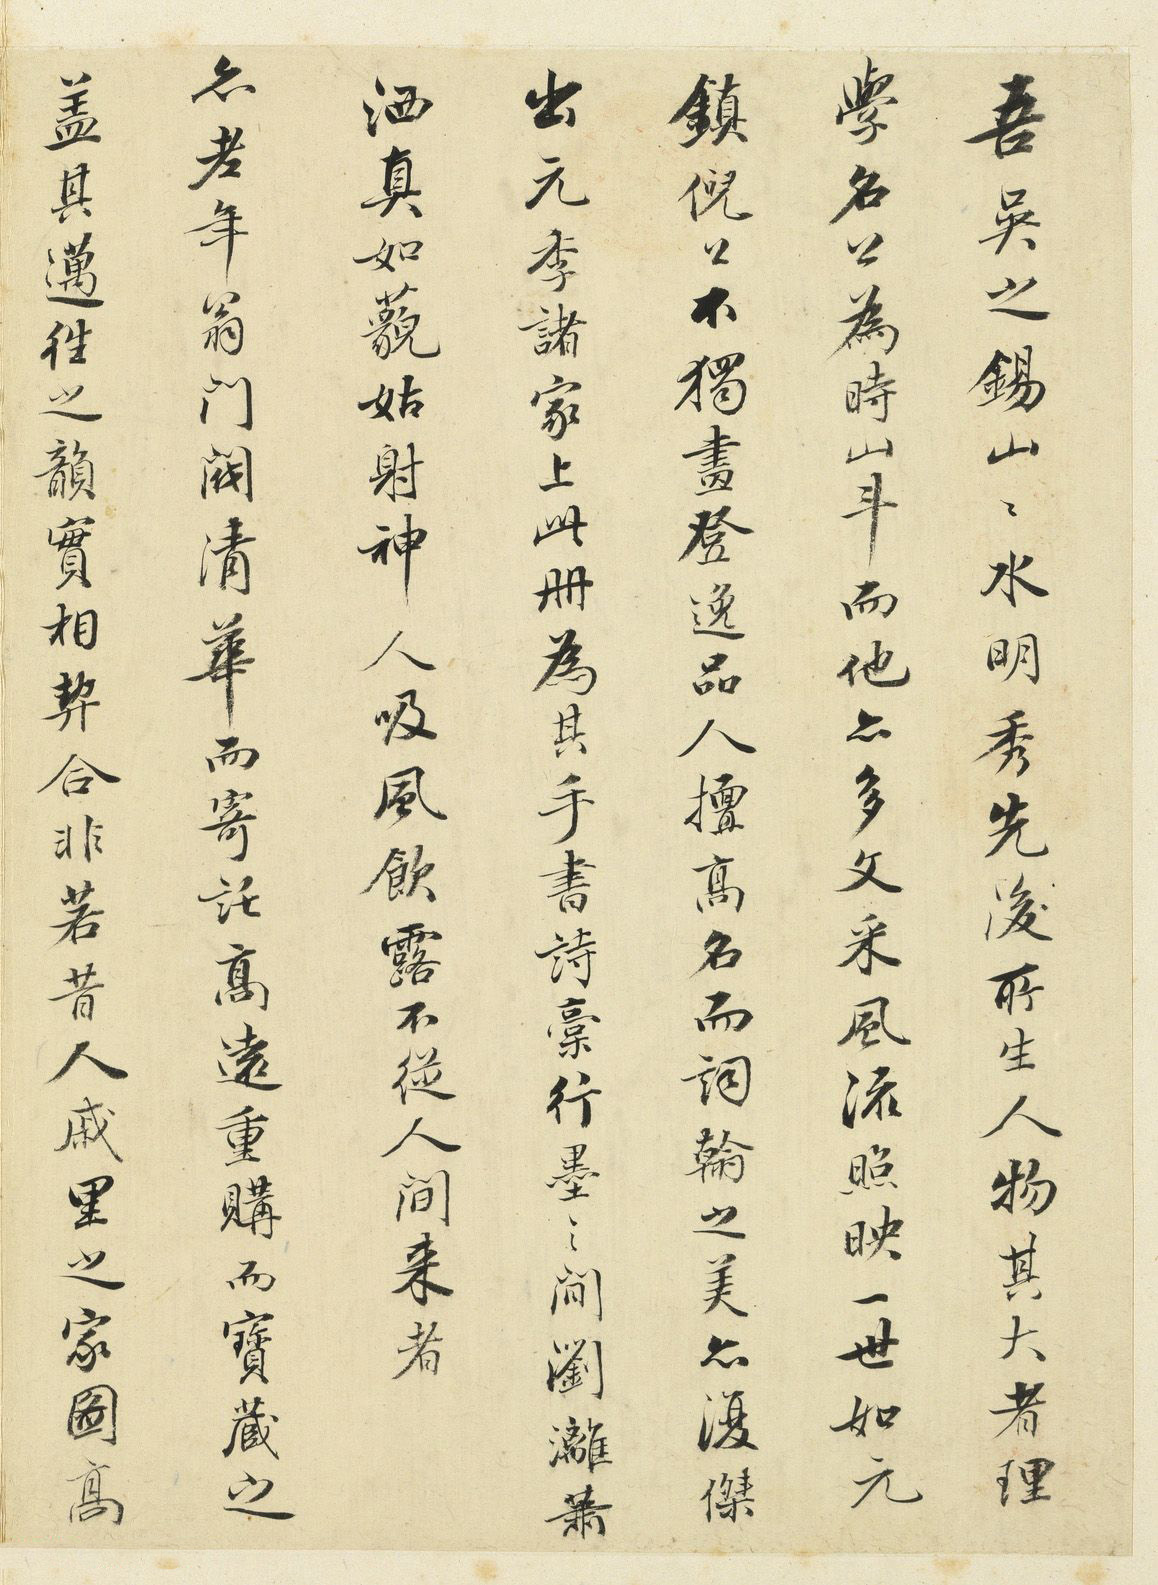 吾吳之錫山〻水明秀先後所生人物其大者理
學名公為時山斗而他亦多文采風流照映一世如元
鎮倪公不獨畫登逸品人擅高名而詞翰之美亦復傑
出元季諸家上此冊為其手書詩稾行墨〻間瀏灕蕭
洒真如藐姑射神人吸風飲露不從人間来者
亦老年翁門閥清華而寄託高遠重購而寶蔵之
盖其邁往之韻實相契合非若昔人戚里之家圖高